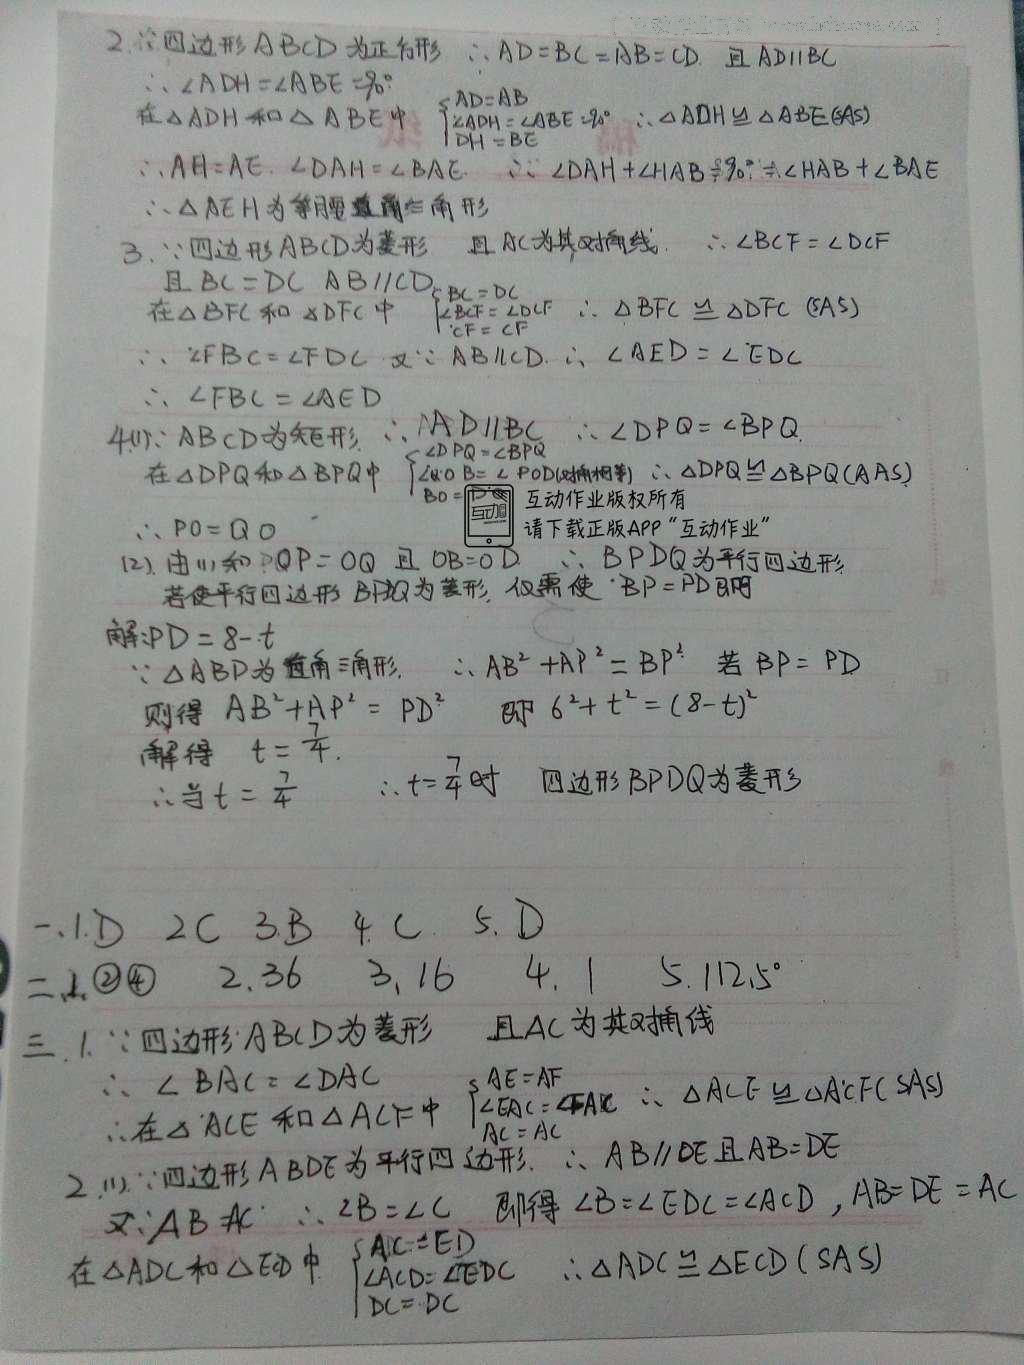 2.∵四边形ABCD为正方形 ∴AD=BC=AB=CD. 且AD//BC
∴∠ADH=∠ABE=90°
在△ADH和△ABE中 {AD=AB
∠ADH=∠ABE=90° ∴△ADH≌△ABE(SAS)
DH=BE
∴AH=AE. ∠DAH=∠BAE. ∵∠DAH+∠HAB=90°=∠HAB+∠BAE
∴△AEH为等腰直角三角形
3.∵四边形ABCD为菱形 且AC为其对角线. ∴∠BCF=∠DCF
且BC=DC AB//CD
在△BFC和△DFC中 {BC=DC
∠BCF=∠DCF ∴△BFC≌△DFC (SAS)
CF=CF
∴∠FBC=∠FDC 又∵AB//CD ∴∠AED=∠EDC
∴∠FBC=∠AED
4.(1)∵ABCD为矩形. ∴AD//BC ∴∠DPQ=∠BPQ
在△DPQ和△BPQ中 {∠DPQ=∠BPQ
∠QOB=∠POD(对角相等) ∴△DPQ≌△BPQ(AAS)
BO=
互动
互动作业版权所有
请下载正版APP“互动作业”
∴PO=QO
(2).由(1)和 OP=OQ 且OB=OD. ∴BPDQ为平行四边形
若使平行四边形BPDQ为菱形. 仅需使BP=PD即可
解:PD=8-t
∵△ABP为直角三角形. ∴AB²+AP²=BP² 若BP=PD
则得AB²+AP²=PD² 即6²+t²=(8-t)²
解得 t=7/4.
∴当t=7/4 ∴t=7/4时 四边形BPDQ为菱形
一、1.D 2C 3.B 4.C 5.D
二、1.②④ 2.36 3,16 4.1 5.112.5°
三.1.∵四边形ABCD为菱形 且AC为其对角线
∴∠BAC=∠DAC
∴在△ACE和△ACF中 {AE=AF
∠EAC=∠FAC ∴△ACE≌△ACF(SAS)
AC=AC
2.(1).∵四边形ABDE为平行四边形. ∴AB//DE且AB=DE
又∵AB=AC ∴∠B=∠C 即得∠B=∠EDC=∠ACD,AB=DE=AC
在△ADC和△ECD中 {AC=ED
∠ACD=∠EDC ∴△ADC≌△ECD(SAS)
DC=DC